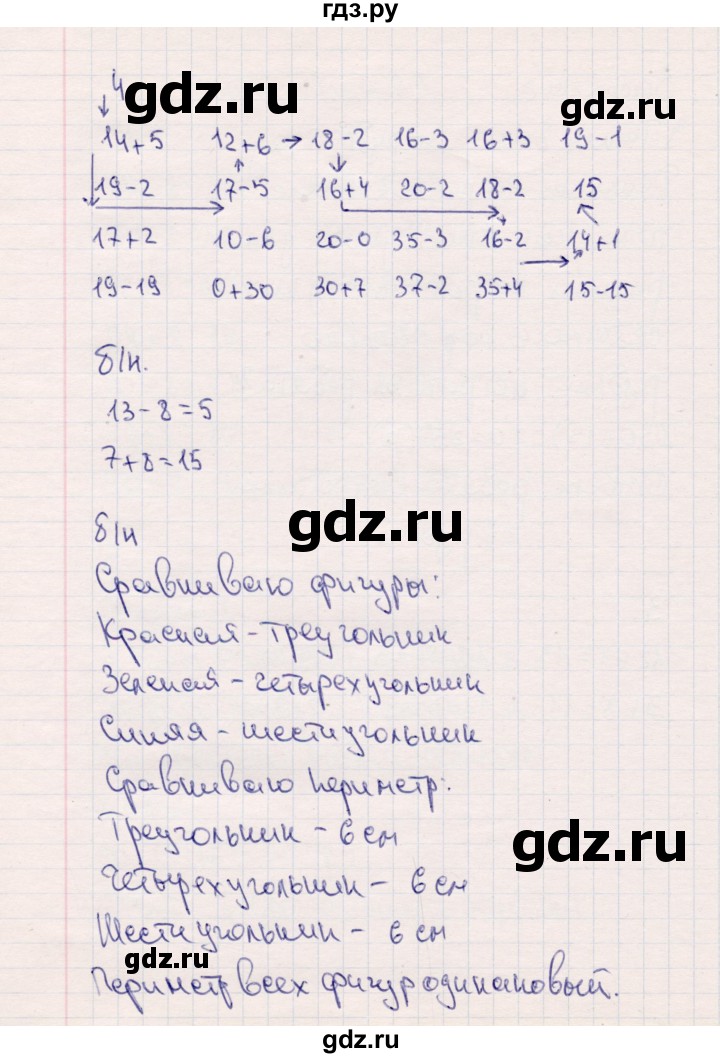 гдз.ру
4
gdz.ru
gdz.ru
14+5 12+6 → 18-2 16-3 16+3 19-1
19-2 17-5 16+4 20-2 18-2 15
17+2 10-6 20-0 35-3 16-2 14+1
19-19 0+30 30+7 37-2 35+4 15-15
б/н.
13-8=5
7+8=15
gdz.ru
б/н
Сравниваю фигуры:
Красная - треугольник
Зеленая - четырехугольник
Синяя - шестиугольник
Сравниваю периметр:
gdz.ru
Треугольник - 6 см
Четырехугольник - 6 см
Шестиугольник - 6 см
gdz.ru
Периметр всех фигур одинаковый.
gdz.ru